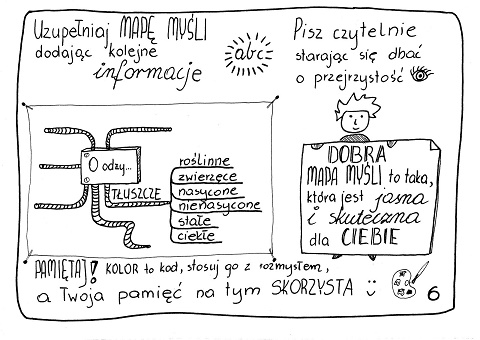 Uzupełniaj MAPĘ MYŚLI
dodając kolejne
informacje
abc
Pisz czytelnie
starając się dbać
o przejrzystość
O odzy...
TŁUSZCZE
roślinne
zwierzęce
nasycone
nienasycone
stałe
ciekłe
DOBRA
MAPA MYŚLI to taka,
która jest jasna
i skuteczna
dla CIEBIE
PAMIĘTAJ! KOLOR to kod, stosuj go z rozmysłem,
a Twoja pamięć na tym SKORZYSTA
6